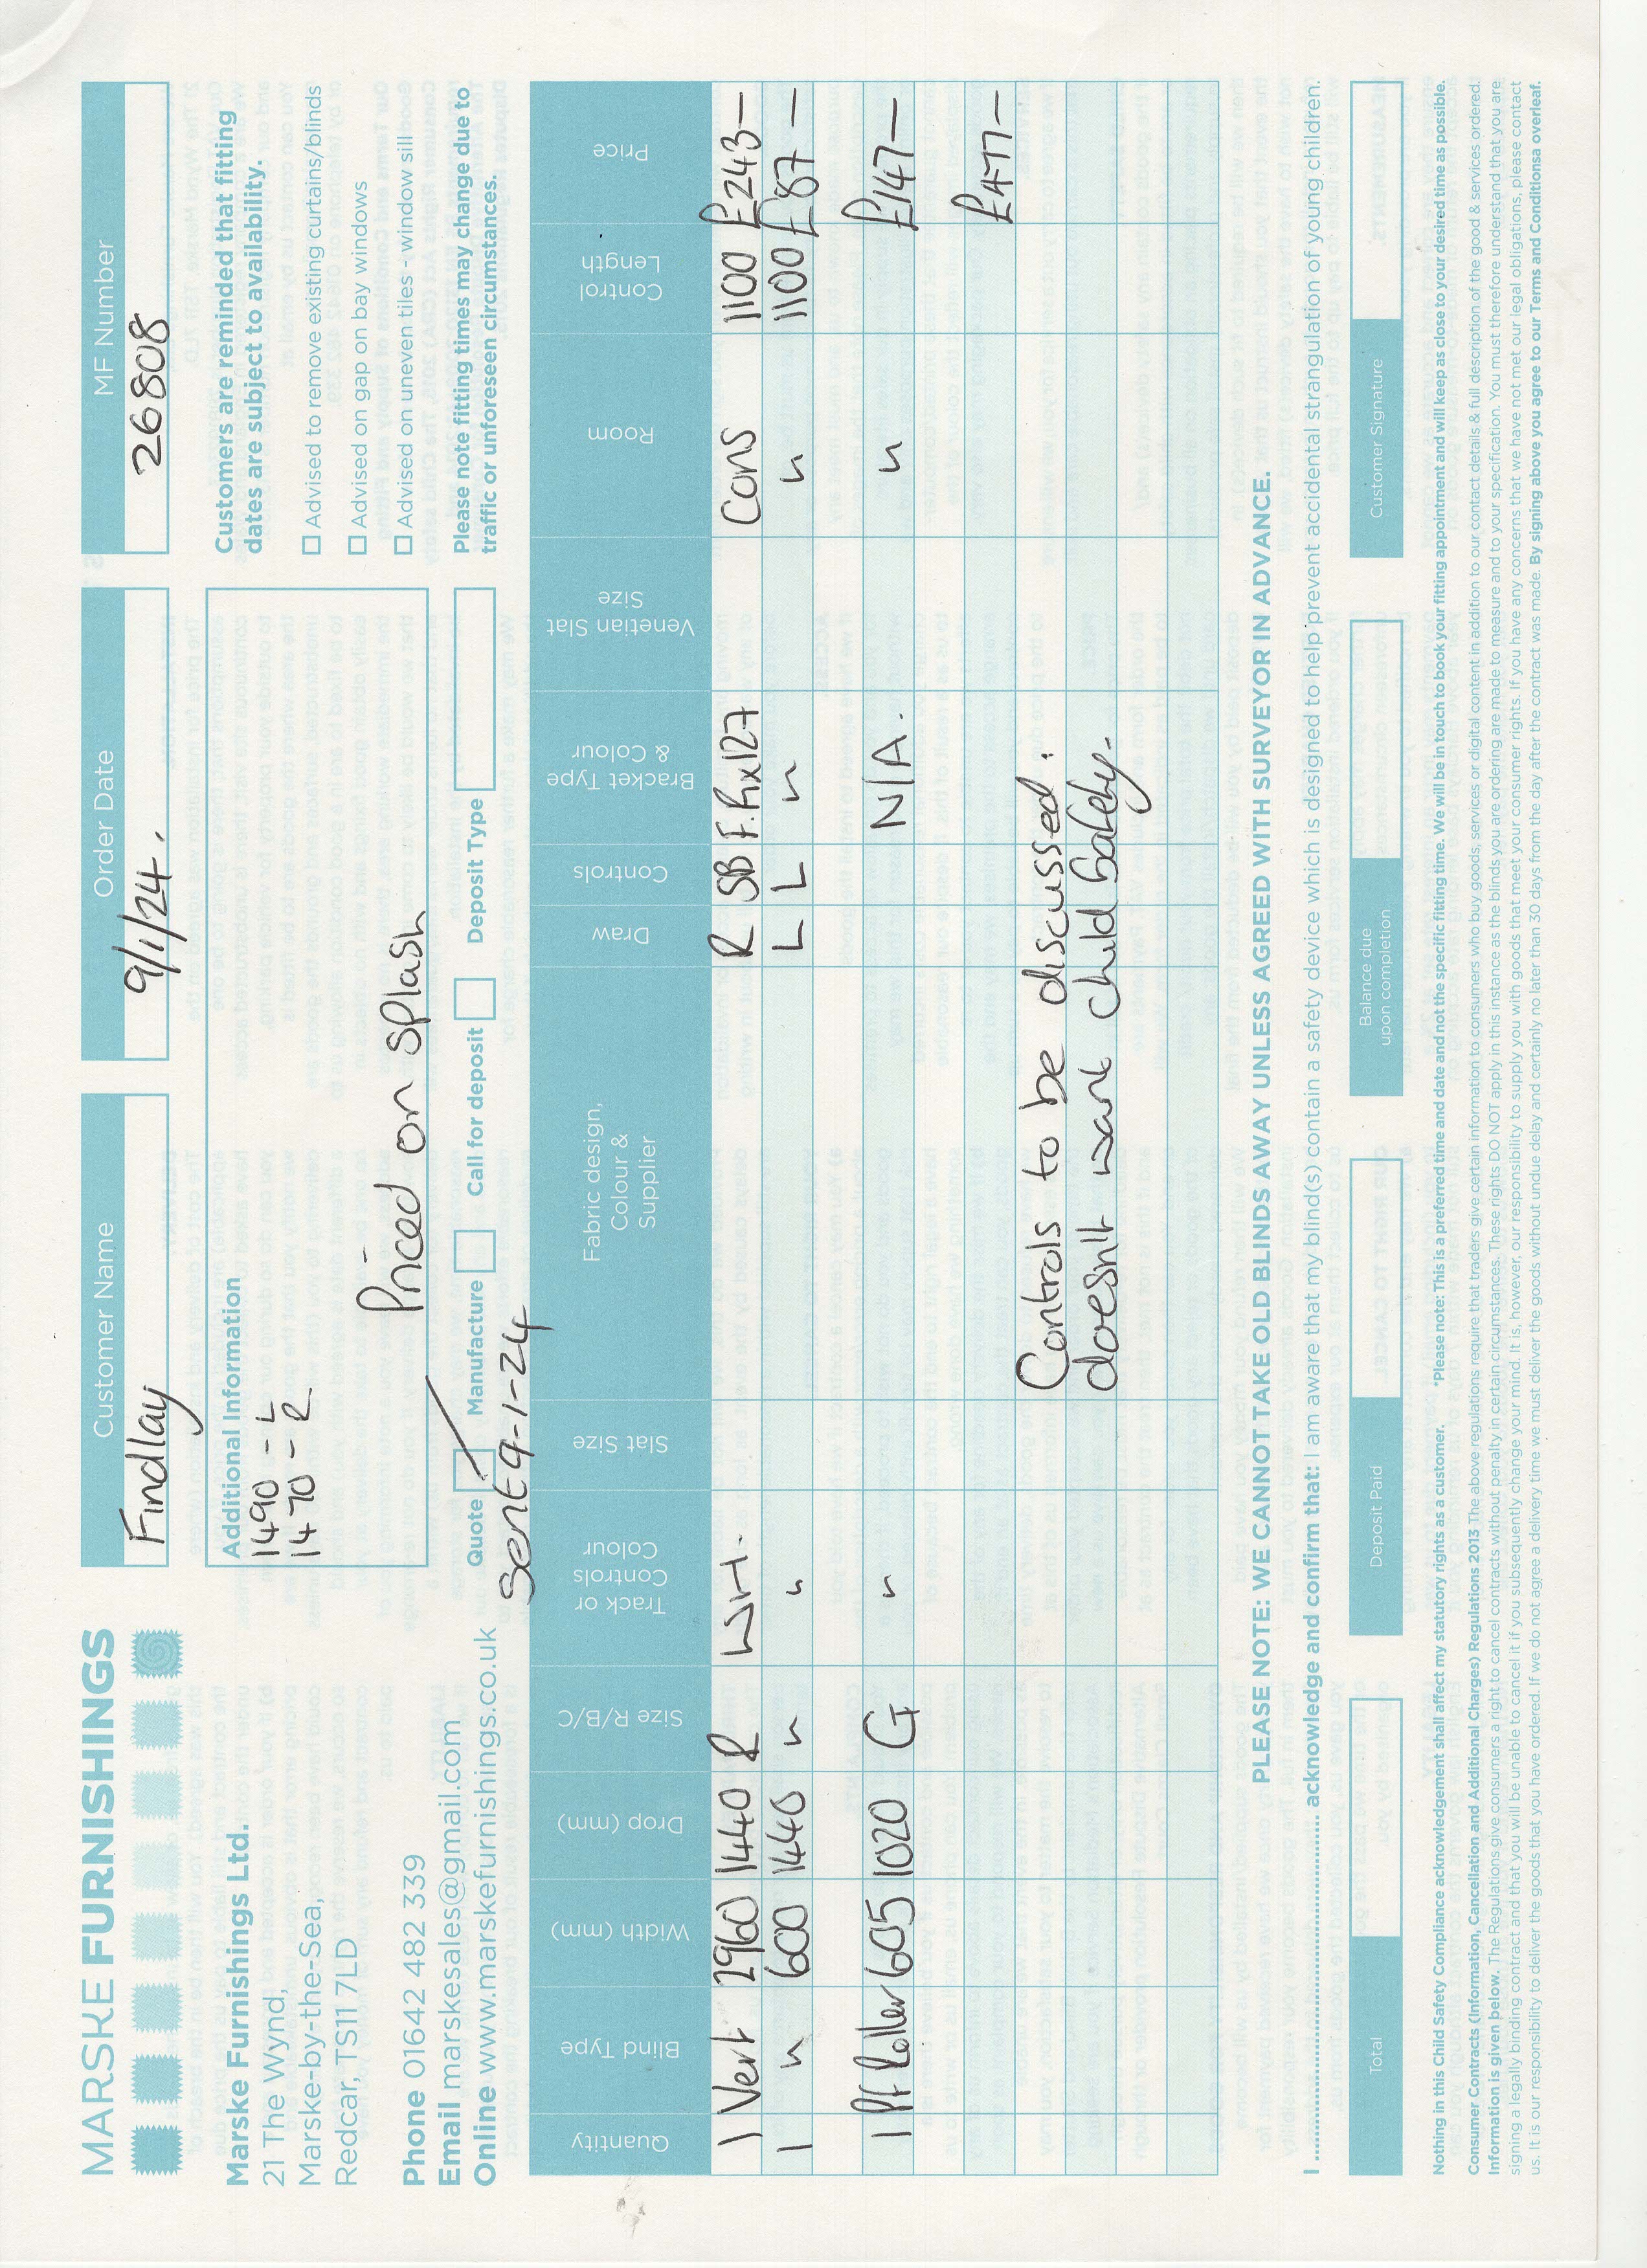 MARSKE FURNISHINGS
Marske Furnishings Ltd.
21 The Wynd,
Marske-by-the-Sea,
Redcar, TS11 7LD
Phone 01642 482 339
Email marskesales@gmail.com
Online www.marskefurnishings.co.uk
Customer Name
Findlay
Order Date
9/1/24.
MF Number
26808
Additional Information
1490 - L
1470 - R
Priced on Splash
Quote Manufacture Call for deposit Deposit Type
Sent 9-1-24
Customers are reminded that fitting
dates are subject to availability.
Advised to remove existing curtains/blinds
Advised on gap on bay windows
Advised on uneven tiles - window sill
Please note fitting times may change due to
traffic or unforeseen circumstances.
Quantity Blind Type Width (mm) Drop (mm) Size R/B/C Track or Controls Colour Slat Size Fabric design, Colour & Supplier Draw Controls Bracket Type & Colour Venetian Slat Size Room Control Length Price
1 Vert 2960 1440 R WH. R SB F.Fix127 Cons 1100 £243—
1 " 600 1440 " " L L " " 1100 £87—
1 Pf Roller 605 1020 G " N/A. " £147—
£477—
Controls to be discussed:
doesn't want child safety.
PLEASE NOTE: WE CANNOT TAKE OLD BLINDS AWAY UNLESS AGREED WITH SURVEYOR IN ADVANCE.
I .............................................. acknowledge and confirm that: I am aware that my blind(s) contain a safety device which is designed to help prevent accidental strangulation of young children.
Total Deposit Paid Balance due upon completion Customer Signature
Nothing in this Child Safety Compliance acknowledgement shall affect my statutory rights as a customer. *Please note: This is a preferred time and date and not the specific fitting time. We will be in touch to book your fitting appointment and will keep as close to your desired time as possible.
Consumer Contracts (Information, Cancellation and Additional Charges) Regulations 2013 The above regulations require that traders give certain information to consumers who buy goods, services or digital content in addition to our contact details & full description of the good & services ordered.
Information is given below. The Regulations give consumers a right to cancel contracts without penalty in certain circumstances. These rights DO NOT apply in this instance as the blinds you are ordering are made to measure and to your specification. You must therefore understand that you are
signing a legally binding contract and that you will be unable to cancel it if you subsequently change your mind. It is, however, our responsibility to supply you with goods that meet your consumer rights. If you have any concerns that we have not met our legal obligations, please contact
us. It is our responsibility to deliver the goods that you have ordered. If we do not agree a delivery time we must deliver the goods without undue delay and certainly no later than 30 days from the day after the contract was made. By signing above you agree to our Terms and Conditionsa overleaf.